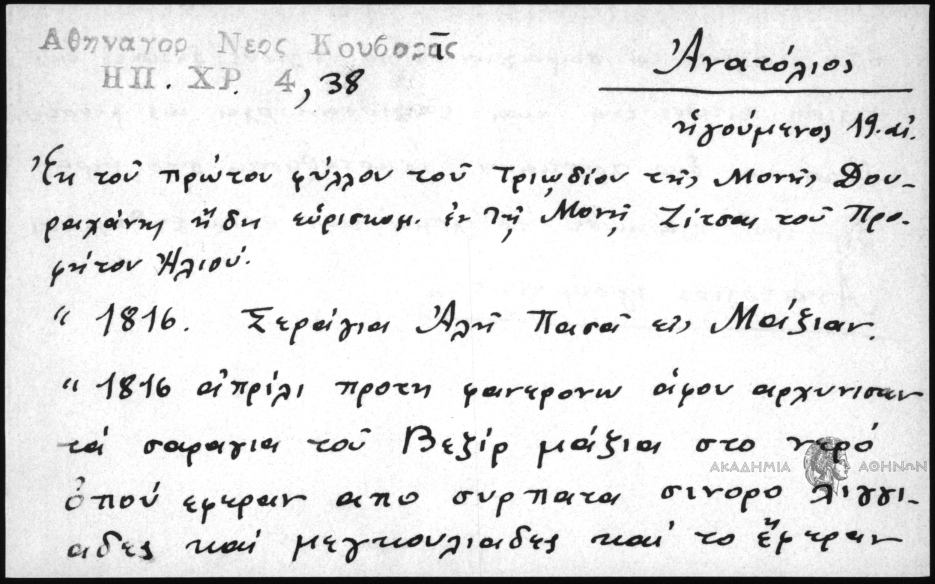 Αθηναγορ Νεος Κουβαρᾶς
ΗΠ. ΧΡ. 4, 38
Ἀνατόλιος
ἡγούμενος 19. αἰ.
Ἐκ τοῦ πρώτου φύλλου τοῦ Τριῳδίου τῆς Μονῆς Δου-
ραχάνης ἤδη εὑρισκομ. ἐν τῇ Μονῇ Ζίτσας τοῦ Προ-
φήτου Ἠλιού.
" 1816. Σεράγια Ἀλῆ Πασᾶ εἰς Μάξιαν.
" 1816 ἀπρίλι προτη φανερονω ἀφου αρχυνισαν
τά σαραγια τοῦ Βεζίρ μάξια στο νερό
ὁπού εφεραν απο συρπατα σινορο λιγγι-
αδες καί μεγκουλιαδες καί το ἔφεραν
ΑΚΑΔΗΜΙΑ ΑΘΗΝΩΝ